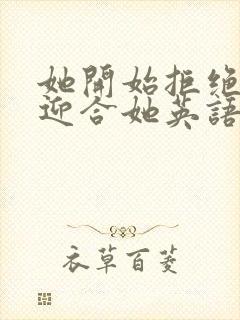 她開始拒绝
迎合她英語
衣草百菱